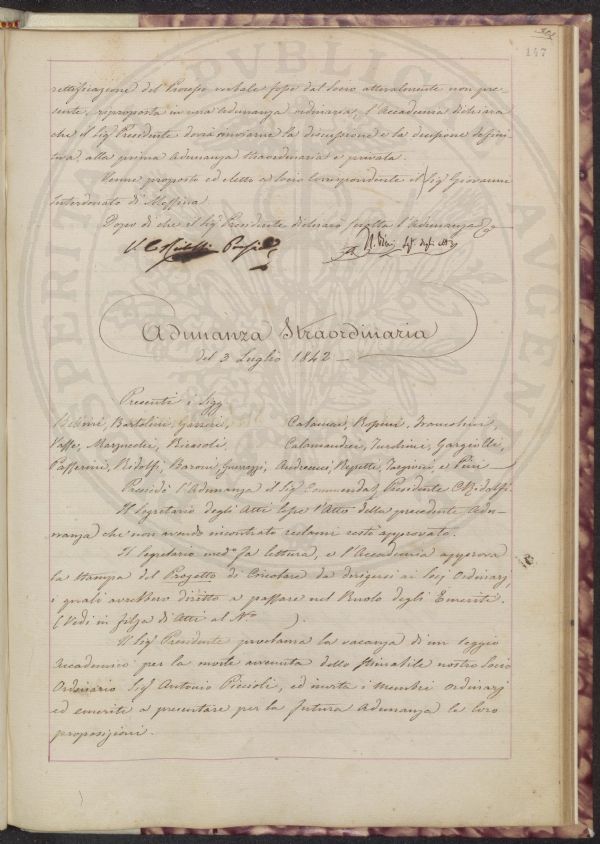 147
rettificazione del Processo verbale fosse dal Socio attualmente non pre-
sente, riproposta in una adunanza ordinaria, l'Accademia dichiara
che il Sig.r Presidente dovrà rinviarne la discussione e la decisione defini-
tiva alla prima Adunanza straordinaria e privata.
Venne proposto ed eletto a Socio Corrispondente il Sig.r Giovanni
Interdonato di Messina
Dopo di che il Sig.r Presidente dichiarò sciolta l'Adunanza
Adunanza Straordinaria
del 3 Luglio 1842
Presenti i Sigg.
Bartolini, Calamai, Francolini,
Marzucchi, Calamandrei, Turchini, Gargiolli
Passerini, Ridolfi, Baroni, Guerazzi, Andreucci, Repetti, Targioni, e Pieri
Presiedè l'Adunanza il Sig.r Commendat. Presidente C. Ridolfi.
Il Segretario degli Atti lesse l'Atto della precedente Adu-
nanza che non avendo incontrato reclami restò approvato.
Il Segretario med.o fa lettura, e l'Accademia approva
la stampa del Progetto di Circolare da dirigersi ai Socj Ordinarj,
i quali avrebbero diritto a passare nel Ruolo degli Emeriti.
(Vedi in filza di Atti al N.o ).
Il Sig.r Presidente proclama la vacanza di un seggio
Accademico per la morte avvenuta dello stimabile nostro Socio
Ordinario Sig.r Antonio Piccioli, ed invita i membri ordinarj
ed emeriti a presentare per la futura Adunanza le loro
proposizioni.